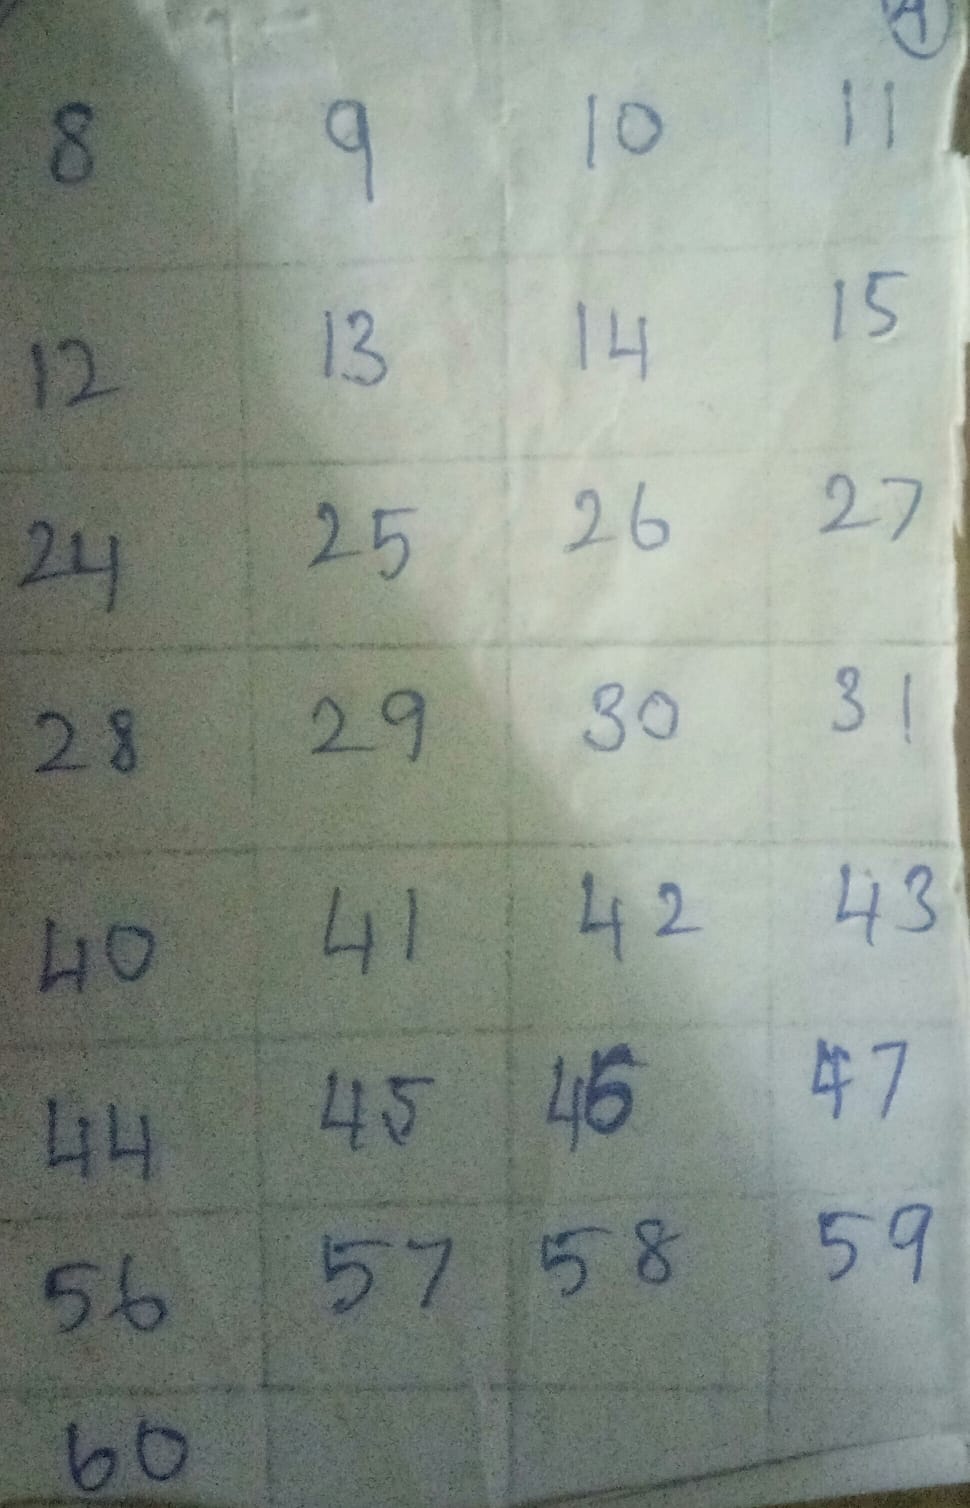 4
8 9 10 11
12 13 14 15
24 25 26 27
28 29 30 31
40 41 42 43
44 45 46 47
56 57 58 59
60